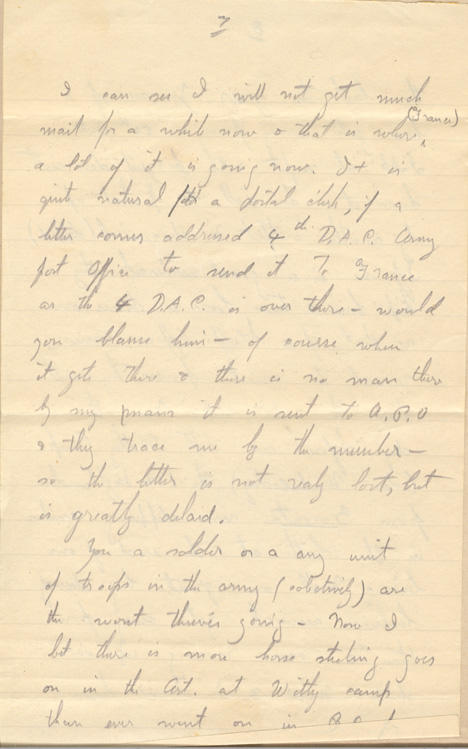 7
I can see I will not get much
(France)
mail for a while now & that is where
a lot of it is going now. It is
quit natural for a postal clerk, if a
letter comes addressed 4th D.A.C. Army
post Office to send it To France
as the 4 D.A.C. is over there – would
you blame him – of course when
it gets there & there is no man there
by my name it is sent to A.P.O
& they trace me by the number –
so the letter is not realy lost, but
is greatly delaid.
You a solder or a any unit
of troops in the army (collectively) are
the worst thieves going – Now I
bet there is more horse steling goes
on in the Art. at Witly camp
than ever went on in